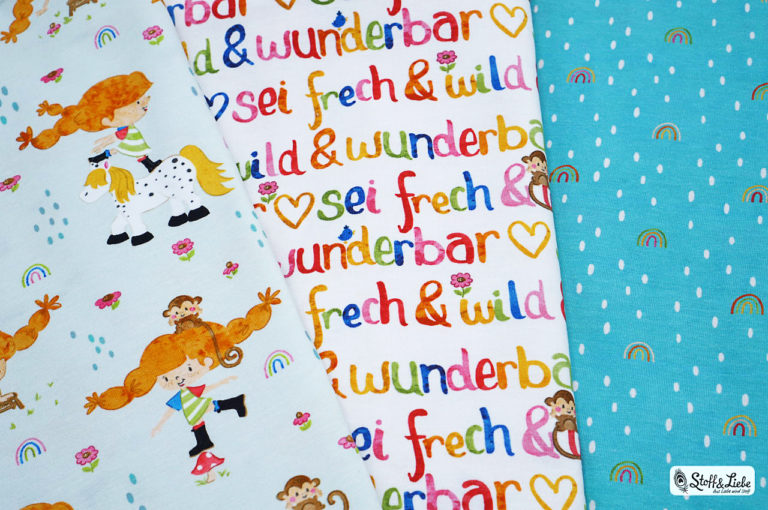 wunderbar
wild & wunderbar
sei frech & wild
wild & wunderbar
sei frech &
wunderbar
frech & wild
& wunderba
sei frech &
wunderbar
Stoff & Liebe
Aus Liebe wird Stoff